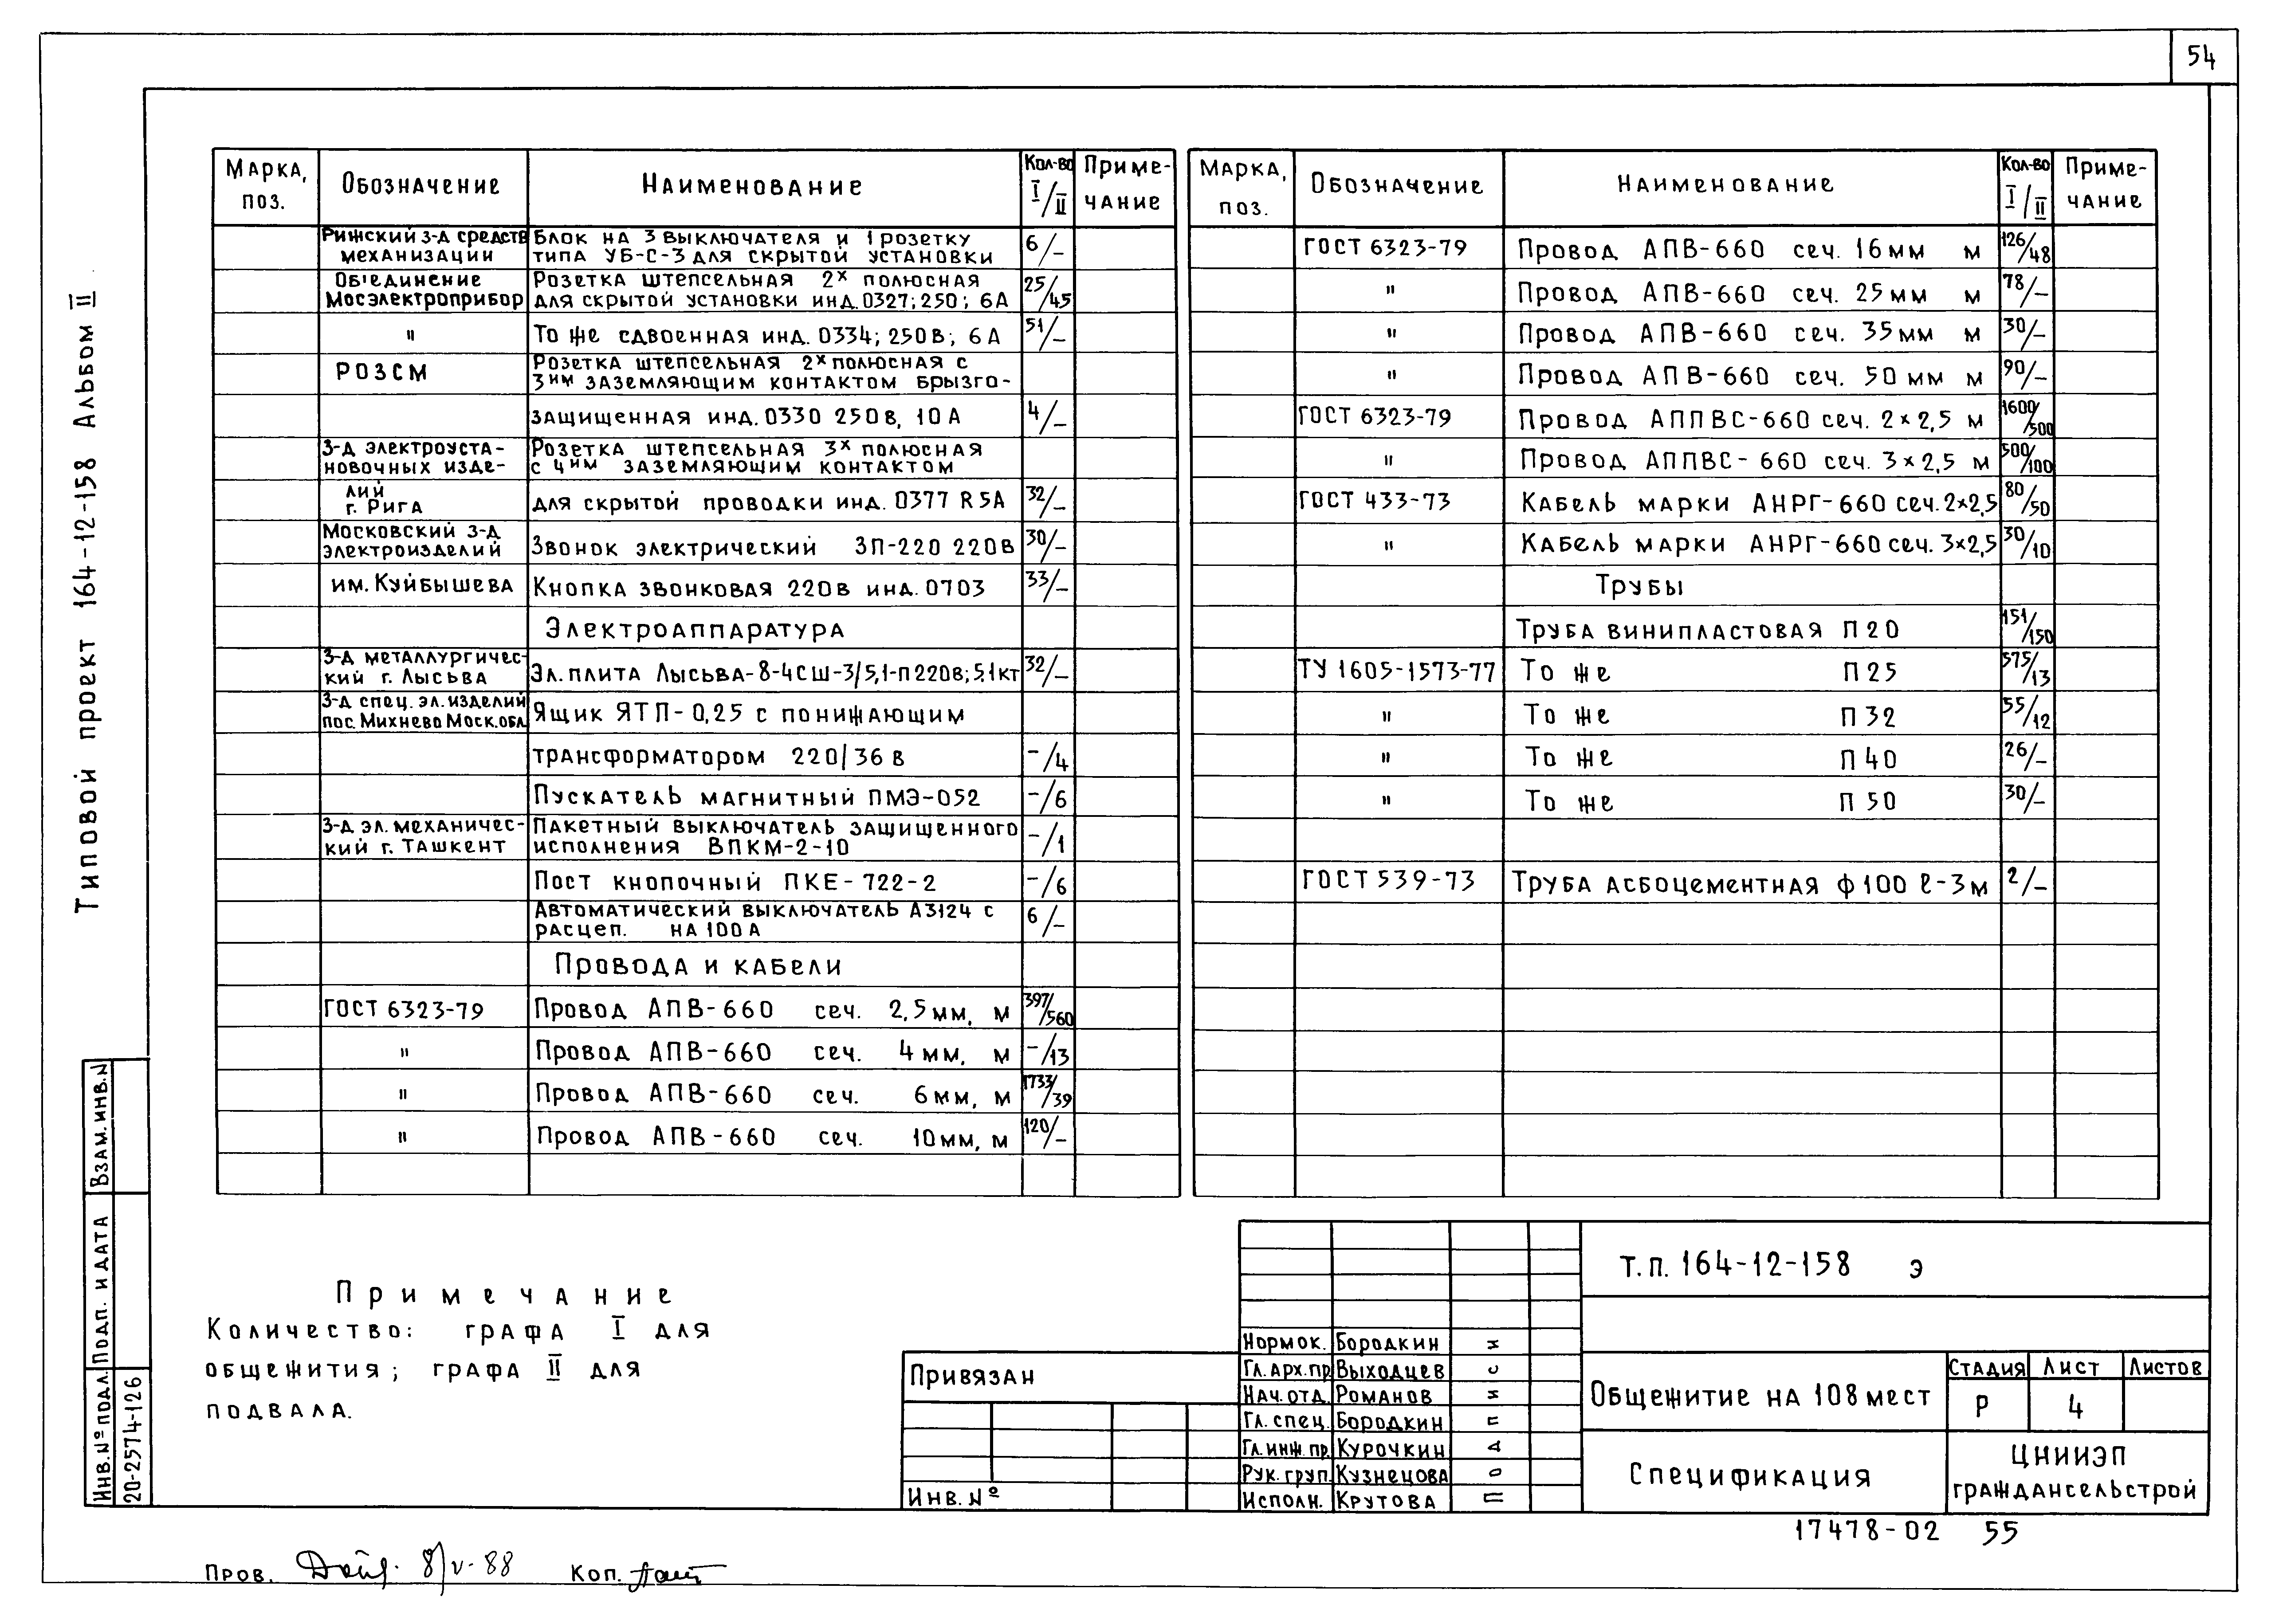 54
Типовой проект 164-12-158 Альбом II
Марка, поз. Обозначение Наименование Кол-во I/II Приме-чание
Рижский з-д средств Блок на 3 выключателя и 1 розетку 6/–
механизации типа УБ-С-3 для скрытой установки
Объединение Розетка штепсельная 2х полюсная 25/45
Мосэлектроприбор для скрытой установки инд. 0327; 250; 6А
" То же сдвоенная инд. 0334; 250в; 6А 51/–
РОЗСМ Розетка штепсельная 2х полюсная с
3им заземляющим контактом брызго-
защищенная инд. 0330 250в, 10А 4/–
З-д электроуста- Розетка штепсельная 3х полюсная
новочных изде- с 4им заземляющим контактом
лий
г. Рига для скрытой проводки инд. 0377 R 5А 32/–
Московский з-д
электроизделий Звонок электрический ЗП-220 220в 30/–
им. Куйбышева Кнопка звонковая 220в инд. 0703 33/–
Электроаппаратура
З-д металлургичес-
кий г. Лысьва Эл. плита Лысьва-8-4СШ-3/5,1-П220в; 5.1кт 32/–
З-д спец. эл. изделий
пос. Михнево Моск.обл. Ящик ЯТП-0,25 с понижающим
трансформатором 220/36 в –/4
Пускатель магнитный ПМЭ-052 –/6
З-д эл. механичес- Пакетный выключатель защищенного –/1
кий г. Ташкент исполнения ВПКМ-2-10
Пост кнопочный ПКЕ-722-2 –/6
Автоматический выключатель А3124 с 6/–
расцеп. на 100 А
Провода и кабели
ГОСТ 6323-79 Провод АПВ-660 сеч. 2,5 мм, м 397/560
" Провод АПВ-660 сеч. 4 мм, м –/13
" Провод АПВ-660 сеч. 6 мм, м 1733/39
" Провод АПВ-660 сеч. 10 мм, м 120/–
Марка, поз. Обозначение Наименование Кол-во I/II Приме-чание
ГОСТ 6323-79 Провод АПВ-660 сеч. 16 мм м 126/48
" Провод АПВ-660 сеч. 25 мм м 78/–
" Провод АПВ-660 сеч. 35 мм м 30/–
" Провод АПВ-660 сеч. 50 мм м 90/–
ГОСТ 6323-79 Провод АППВС-660 сеч. 2×2,5 м 1600/500
" Провод АППВС-660 сеч. 3×2,5 м 500/100
ГОСТ 433-73 Кабель марки АНРГ-660 сеч. 2×2,5 80/50
" Кабель марки АНРГ-660 сеч. 3×2,5 30/10
Трубы
Труба винипластовая П 20 151/150
ТУ 1605-1573-77 То же П 25 575/13
" То же П 32 55/12
" То же П 40 26/–
" То же П 50 30/–
ГОСТ 539-73 Труба асбоцементная ф100 ℓ-3м 2/–
Примечание
Количество: графа I для
общежития; графа II для
подвала.
Взам. инв. N
Подп. и дата
Инв. № подл.
20-2574-126
Привязан
Инв. №
Нормок. Бородкин
Гл. арх. пр. Выходцев
Нач. отд. Романов
Гл. спец. Бородкин
Гл. инж. пр. Курочкин
Рук. груп. Кузнецова
Исполн. Крутова
Т.П. 164-12-158 Э
Общежитие на 108 мест
Стадия Лист Листов
Р 4
Спецификация
ЦНИИЭП
граждансельстрой
17478-02 55
Пров. 8/V-88 Коп.